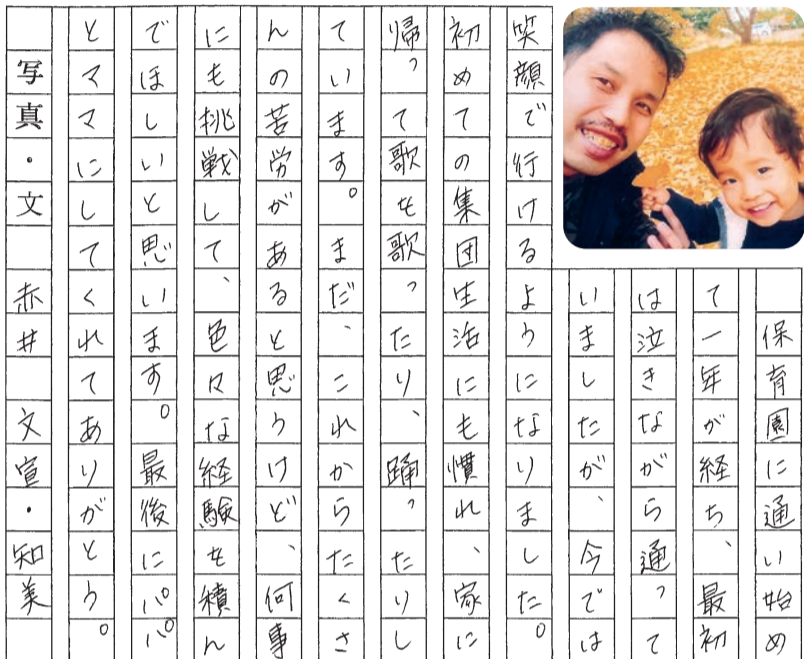 保育園に通い始め
て一年が経ち、最初
は泣きながら通って
いましたが、今では
笑顔で行けるようになりました。
初めての集団生活にも慣れ、家に
帰って歌を歌ったり、踊ったりし
ています。まだ、これからたくさ
んの苦労があると思うけど、何事
にも挑戦して、色々な経験を積ん
でほしいと思います。最後にパパ
とママにしてくれてありがとう。
写真・文　赤井　文宣・知美